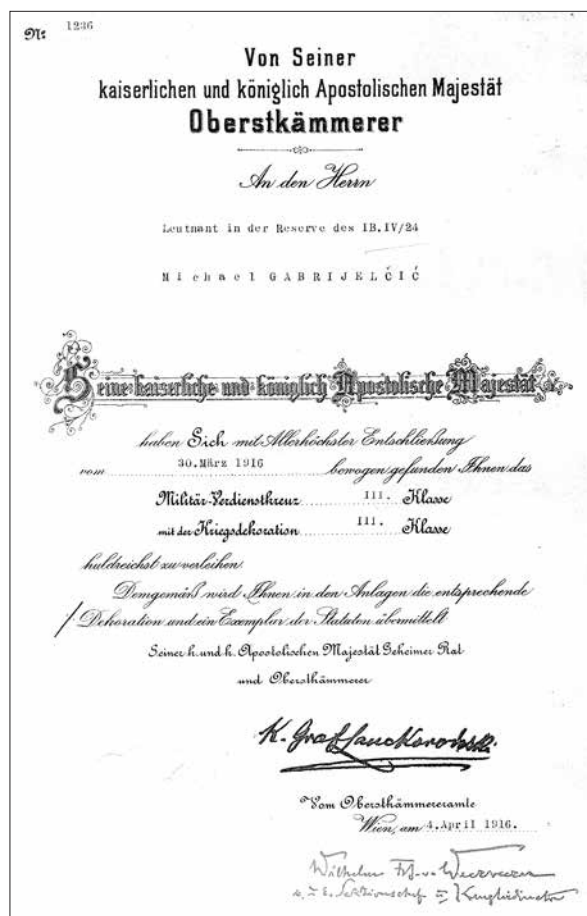 №: 1236
Von Seiner
kaiserlichen und königlich Apostolischen Majestät
Oberstkämmerer
An den Herrn
Leutnant in der Reserve des IB.IV/24
Michael GABRIJELČIĆ
Seine kaiserliche und königlich Apostolische Majestät
haben Sich mit Allerhöchster Entschließung
vom 30.März 1916 bewogen gefunden Ihnen das
Militär-Verdienstkreuz III. Klasse
mit der Kriegsdekoration III. Klasse
huldreichst zu verleihen.
Demgemäß wird Ihnen in den Anlagen die entsprechende
/ Dekoration und ein Exemplar der Statuten übermittelt.
Seiner k. und k. Apostolischen Majestät Geheimer Rat
und Oberstkämmerer
K. Graf Lanckoroński
Vom Oberstkämmereramte
Wien, am 4.April 1916.
Wilhelm Frh. v.
k. u. k. Sektionschef u. Kanzleidirektor